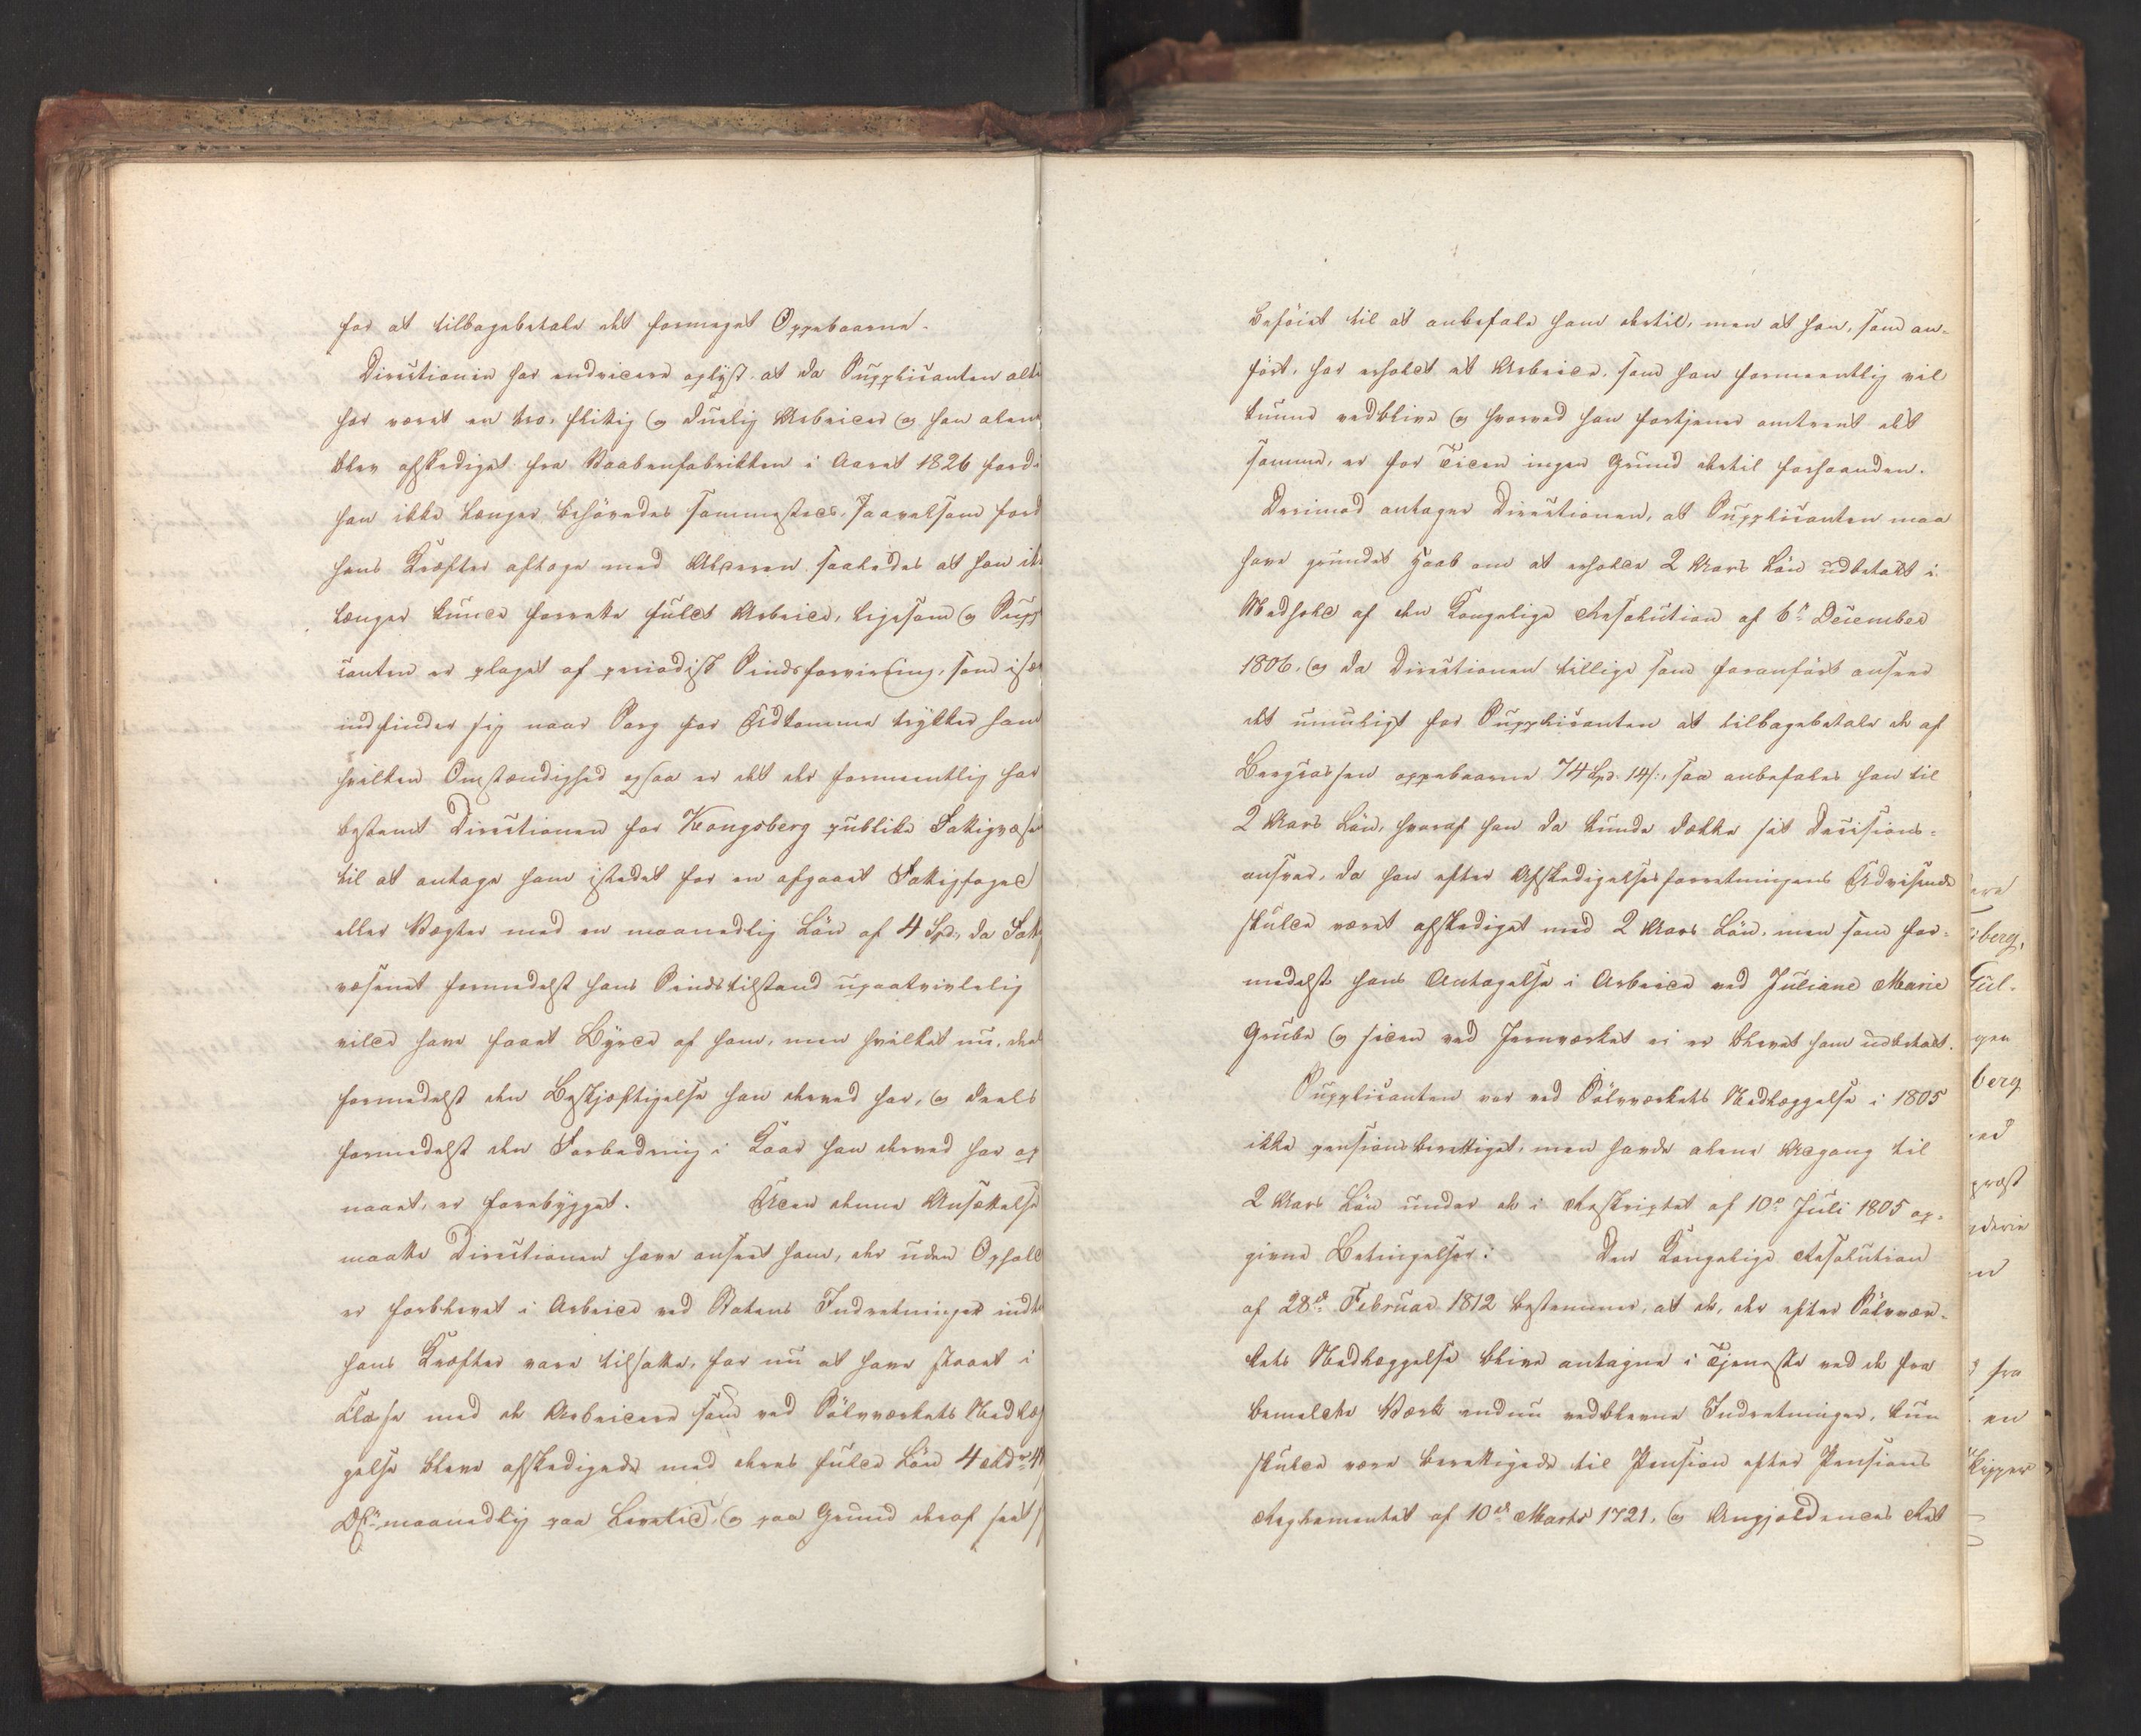 for at tilbagebetale det formeget Oppebaarne.
Directionen har endvidere oplyst at da Supplicanten alti
har været en tro, flittig og duelig Arbeider og han alene
blev afskediget fra Vaabenfabrikken i Aaret 1826 fordi
han ikke længer behövedes sammesteds, saavelsom ford
hans Kræfter aftoge med Alderen saaledes at han ik
længer kunde forrette fuldt Arbeide, ligesom og Supp
canten er plaget af periodisk Sindsforvirring, som isæ
indfinder sig naar Sorg for Udkomme trykker ham
hvilken Omstændighed ogsaa er det der formeentlig har
bestemt Directionen for Kongsberg publike Fattigvæsen
til at antage ham istedet for en afgaaet Fattigfoged
eller Vægter med en maanedlig Lön af 4 Spd, da Fatt
væsenet formedelst hans Sindstilstand upaatvivlelig
vilde have faaet Byrde af ham, men hvilket nu, deels
formedelst den Beskjæftigelse han derved har, og deels
formedelst den Forbedring i Kaar han derved har op
naaet, er forebygget. Uden denne Ansættelse
maatte Directionen have anseet ham, der uden Ophold
er forblevet i Arbeide ved Statens Indretninger indtil
hans Kræfter vare tilsatte, for nu at have staaet i
Classe med de Arbeidere som ved Sölvværkets Nedlæg
gelse bleve afskedigede med deres fulde Lön 4 Rdr 4
maanedlig paa Levetid, og paa Grund deraf seet s
beföiet til at anbefale ham dertil, men at han, som an-
fört, har erholdt et Arbeide, som han formeentlig vil
kunne vedblive og hvorved han fortjener omtrent det
samme, er for Tiden ingen Grund dertil forhaanden.
Derimod antager Directionen, at Supplicanten maa
have grundet Haab om at erholde 2 Aars Lön udbetalt i
Medhold af den Kongelige Resolution af 6te December
1806, og da Directionen tillige som foranfört anseer
det umuligt for Supplicanten at tilbagebetale de af
Bergcassen oppebaarne 74 Spd. 14 s:, saa anbefales han til
2 Aars Lön, hvoraf han da kunde dække sit Decisions-
ansvar, da han efter Afskedigelsesforretningens Udvisende
skulde været afskediget med 2 Aars Lön, men som for-
medelst hans Antagelse i Arbeide ved Juliane Marie
Grube og siden ved Jernværket ei er blevet ham udbetalt.
Supplicanten var ved Sölvværkets Nedlæggelse i 1805
ikke pensionsberettiget, men havde alene Adgang til
2 Aars Lön under de i Rescriptet af 10de Juli 1805 op-
givne Betingelser: Den Kongelige Resolution
af 28de Februar 1812 bestemmer, at de, der efter Sölvvær-
kets Nedlæggelse blive antagne i Tjeneste ved de fra
bemeldte Værk endnu vedblevne Indretninger, kun
skulde være berettigede til Pension efter Pensions
Reglementet af 10de Marts 1721, og Angjældendes Ret